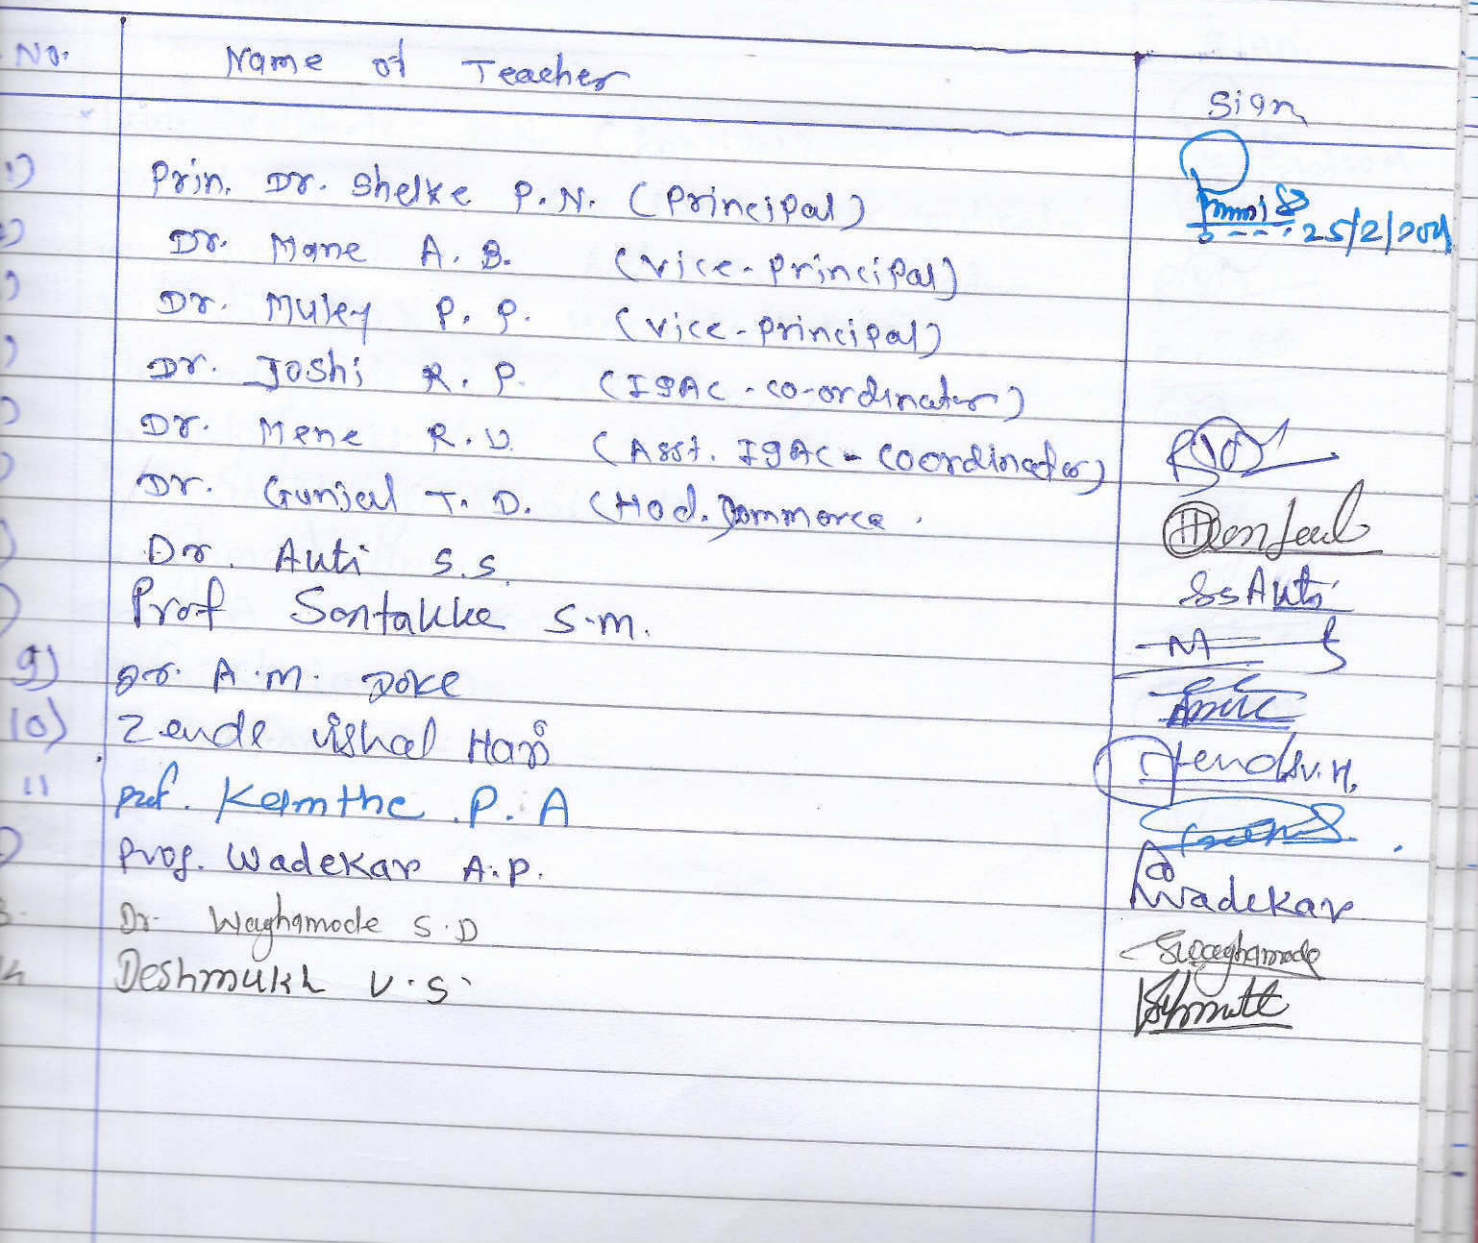 No. Name of Teacher Sign
1) Prin. Dr. Shelke P.N. (Principal)
25/2/2021
2) Dr. Mane A. B. (Vice-Principal)
) Dr. Muley P. P. (Vice-Principal)
) Dr. Joshi R. P. (IQAC-Co-ordinator)
) Dr. Mene R.V. (Asst. IQAC-Coordinator)
) Dr. Gunjal T. D. (Hod. Commerce.
) Dr. Auti S.S. SS Auti
) Prof Sontakke S.M.
9) Dr. A.M. Doke
10) Zende Vishal Hari Zende V.H.
11 Prof. Kamthe P. A
) Prof. Wadekar A.P. Wadekar
3. Dr. Waghamode S.D Swaghamode
14 Deshmukh V.S.